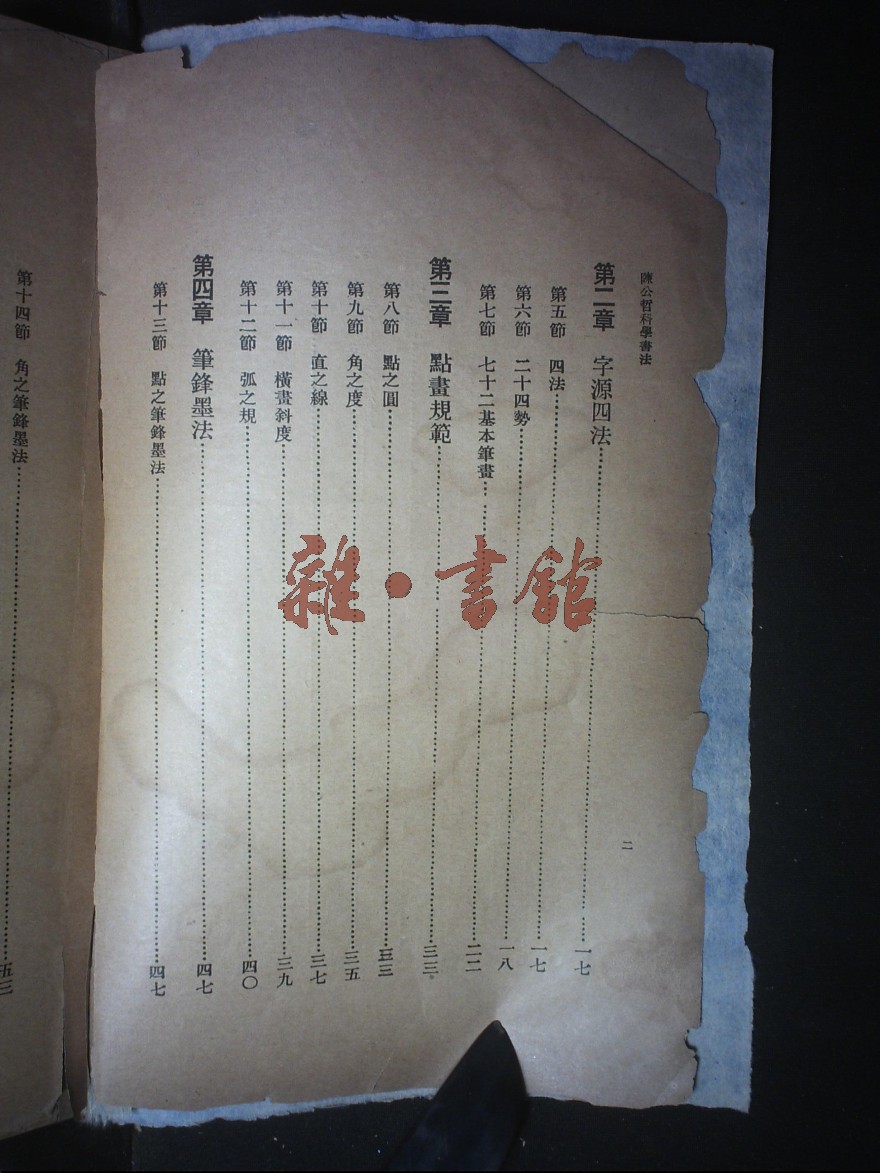 陳公哲科學書法
二
第二章　字源四法……一七
第五節　四法……一七
第六節　二十四勢……一八
第七節　七十二基本筆畫……二二
第三章　點畫規範……三三
第八節　點之圓……三三
第九節　角之度……三五
第十節　直之線……三七
第十一節　橫畫斜度……三九
第十二節　弧之規……四〇
第四章　筆鋒墨法……四七
第十三節　點之筆鋒墨法……四七
第十四節　角之筆鋒墨法……五三
雜·書館